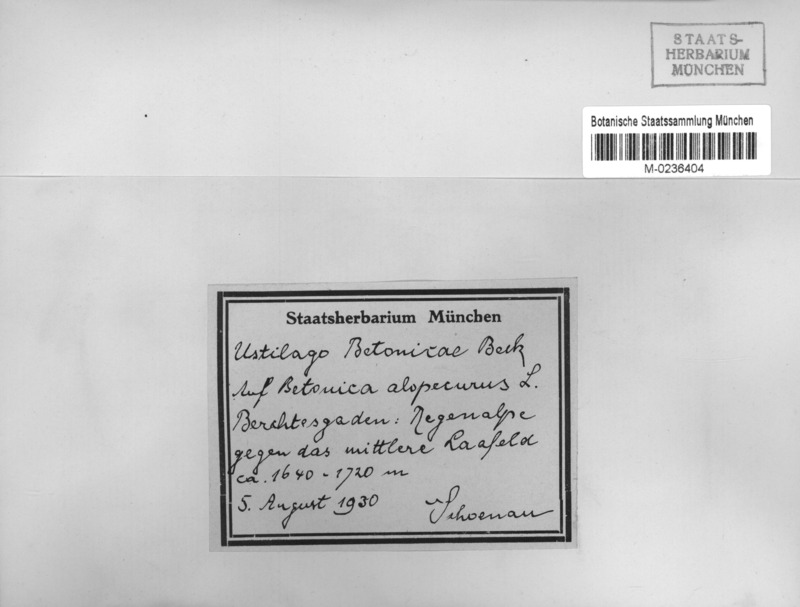 STAATS-
HERBARIUM
MÜNCHEN
Botanische Staatssammlung München
M-0236404
Staatsherbarium München
Ustilago Betonicae Beck
Auf Betonica alopecurus L.
Berchtesgaden: Regenalpe
gegen das mittlere Laafeld
ca. 1640 - 1720 m
5. August 1930 Schoenau